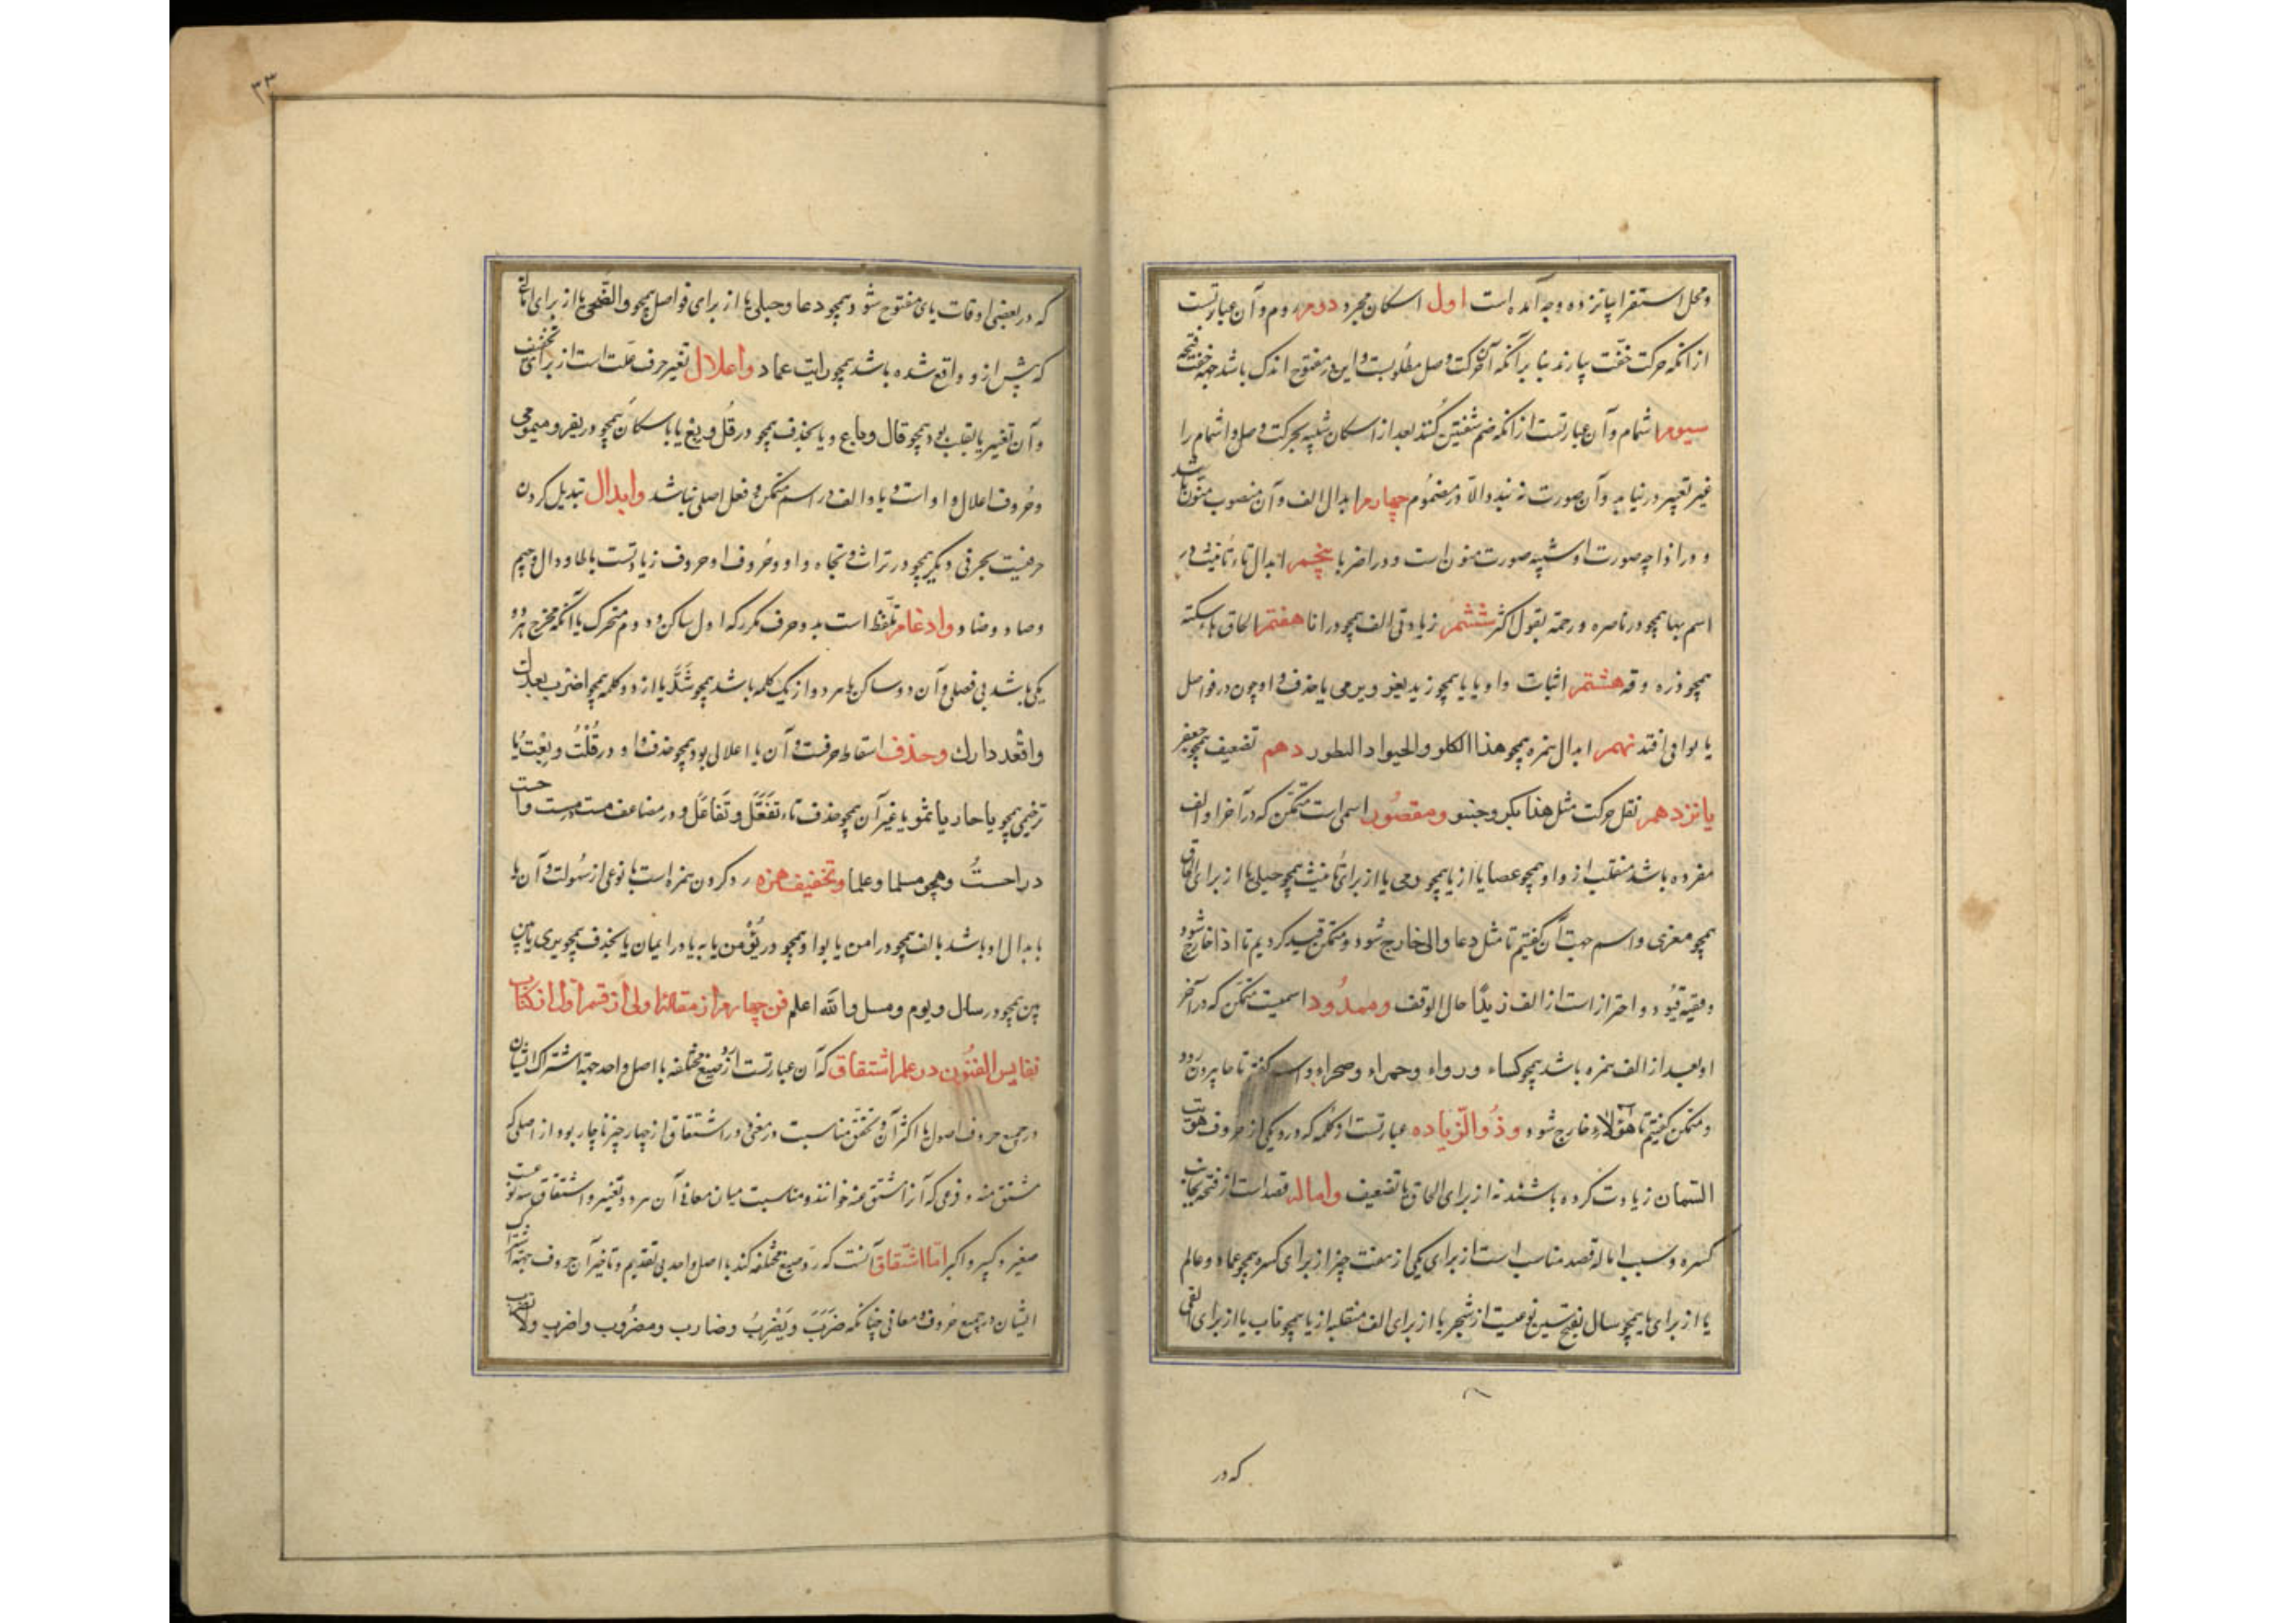 ومحل استقرا پانزده وجه آمده است اول اسکان مجرد دوم روم و آن عبارتست
از آنکه حرکت خفت بیارند بنا بر آنکه آن حرکت وصل مطلوبست و این در مفتوح اندک باشد جهة خفت فتحه
سیوم اشمام و آن عبارتست از آنکه ضم شفتین کنند بعد از اسکان تنبیه بحرکت وصل و اشمام را
غیر بصیر در نیابد و آن صورت نه بندد الا در مضموم چهارم ابدال الف و آن منصوب منون باشد
و در اذا چه صورت او شبیه صورت منون است و در اضربا پنجم ابدال تاء تأنیث در
اسم بها همچو در ناصره و رحمة بقول اکثر ششم زیادتی الف همچو در انا هفتم الحاق هاء سکته
همچو در ره و قه هشتم اثبات واو یا یا همچو زید یغزو و یرمی یا حذف او چون در فواصل
یا قوافی افتد نهم ابدال همزه همچو هذا الکلو والحبو والبطو ورد دهم تضعیف همچو جعفر
یانزدهم نقل حرکت مثل هذا بکر و خبو ومقصور اسمی است متمکن که در آخر او الف
مفرده باشد منقلب از واو همچو عصا یا از یا همچو رحی یا از برای تأنیث همچو حبلی یا از برای الحاق
همچو معزی و اسم جهت آن گفتیم تا مثل دعا و الی خارج شود و متمکن قید کردیم تا اذا خارج شود
و بقیه قیود و احتراز است از الف زیدا حال الوقف وممدود اسمیست متمکن که در آخر
او بعد از الف همزه باشد همچو کساء و رداء و حمراء و صحراء و اسم گفتیم تا جا بیرون رود
و متمکن گفتیم تا هؤلاء خارج شود وذو الزیاده عبارتست از کلمه که در و یکی از حروف هویت
السمان زیادت کرده باشند نه از برای الحاق یا تضعیف واماله قصد است از فتحه بجانب
کسره و سبب اماله قصد مناسب است از برای یکی از هفت چیز از برای کسره همچو عماد و عالم
یا از برای یا همچو سیال بفتح سین نوعیست از شجر یا از برای الف منقلبه از یا همچو ناب یا از برای الفی
که در
۳۳
که در بعضی اوقات یای مفتوح شود همچو دعا و حبلی یا از برای فواصل همچو والضحی یا از برای اماله
که پیش از و واقع شده باشد همچو رایت عماد واعلال تغییر حرف علت است از برای تخفیف
و آن تغییر یا بقلب بود همچو قال و باع و یا بحذف همچو در قل و بع یا باسکان همچو در یغزو و یرمی
و حروف اعلال واو است و یا و الف در اسم متمکن و فعل اصلی نباشد وابدال تبدیل کردن
حرفیست بحرفی دیگر همچو در تراث و تجاه و او و حروف او حروف زیادتست با طا و دال و جیم
و صاد و ضاد وادغام تلفظ است بدو حرف مکرر که اول ساکن و دوم متحرک یا آنکه مخرج هر دو
یکی باشد بی فصلی و آن دو ساکن یا هر دو از یک کلمه باشد همچو شد یا از دو کلمه همچو اضرب بعدک
واقعد دارك وحذف اسقاط حرفست و آن یا اعلالی بود همچو حذف واو در قلت و بعت یا
ترخیمی همچو یا حار یا ثمو یا غیر آن همچو حذف تاء تفعل و تفاعل و در مضاعف مست مست و احست
در احسست وهمچو مسلما وعلما وتخفیف همزه رد کردن همزه است با نوعی از سهولت و آن یا
بابدال او باشد بالف همچو در امن یا بواو همچو در یؤمن یا به یا در ایمان یا بحذف همچو یری یا بین
بین همچو در سال و یوم ومسل والله اعلم فن چهارم از مقالة اولی از قسم اول از کتاب
نفایس الفنون در علم اشتقاق که آن عبارتست از رد صیغ مختلفه با اصل واحد جهة اشتراک ایشان
در جمیع حروف اصول یا اکثر آن و تحقق مناسبت در معنی و در اشتقاق از چهار چیز ناچار بود از اصلی که
مشتق منه و فرعی که آنرا مشتق خوانند و مناسبت میان معانی آن هر دو و تغییر و اشتقاق سه نوعست
صغیر و کبیر و اکبر اما اشتقاق آنست که رد صیغ مختلفه کند با اصل واحد بی تقدیم و تأخیر آن حروف جهة اشتراک
ایشان در جمیع حروف و معانی چنانکه ضرب ویضرب وضارب ومضروب واضرب ولا تضرب